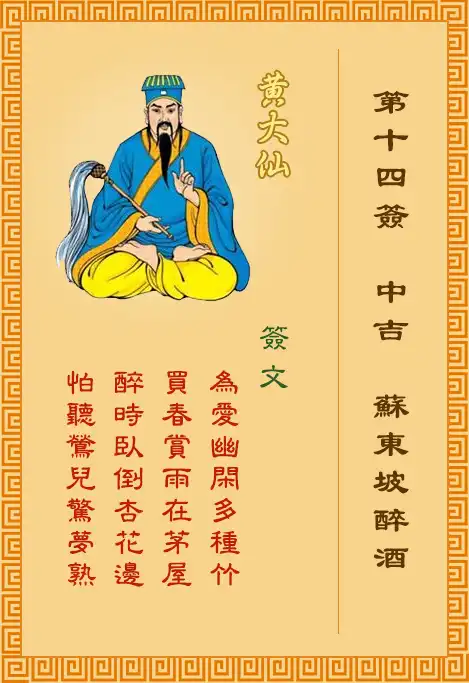 第十四簽 中吉 蘇東坡醉酒
黄大仙
簽文
為愛幽閑多種竹
買春賞雨在茅屋
醉時臥倒杏花邊
怕聽鶯兒驚夢熟